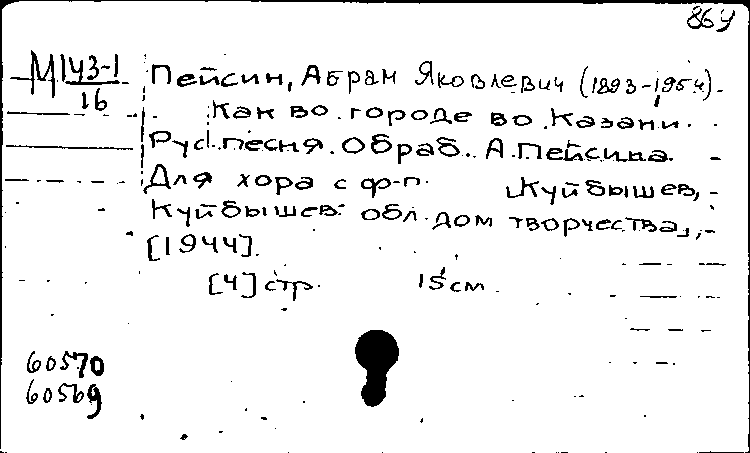 864
М143-1
16
Пейсин, Абрам Яковлевич (1893-1954).
Как во городе во Казани.
Рус. песня. Обраб. А. Пейсина.
Для хора с ф-п. Куйбышев,
Куйбышев. обл. дом творчества,
[1944].
[4] стр. 15 см.
60570
60569